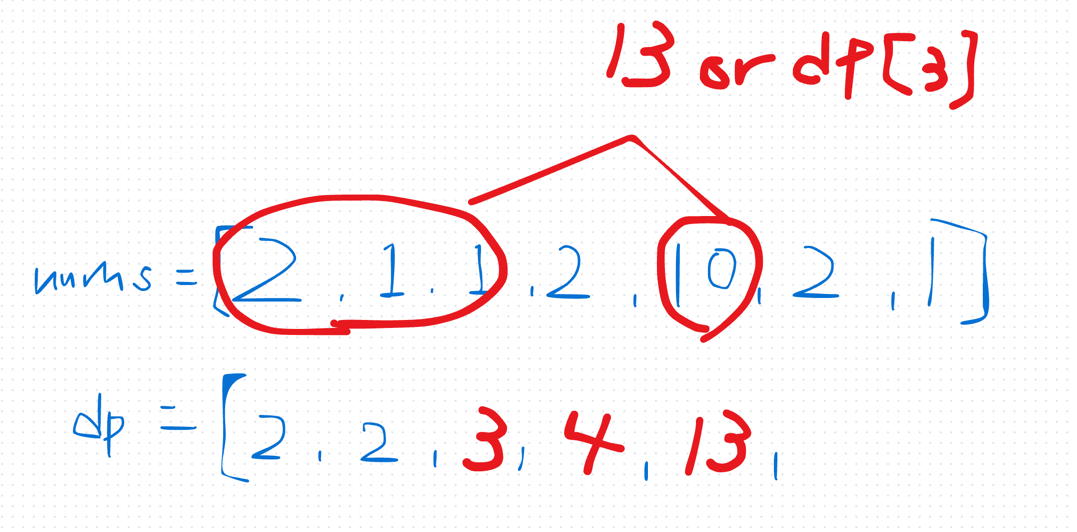 13 or dp[3]
nums = [2, 1, 1, 2, 10, 2, 1]
dp = [2, 2, 3, 4, 13,